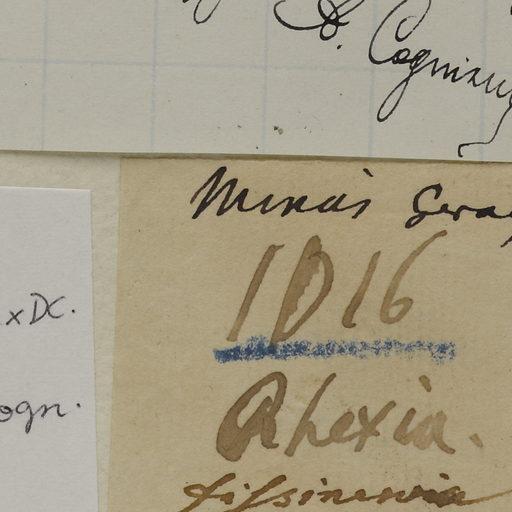 A. Cogniaux
Minas Gera
1016
Rhexia.
x DC.
ogn.